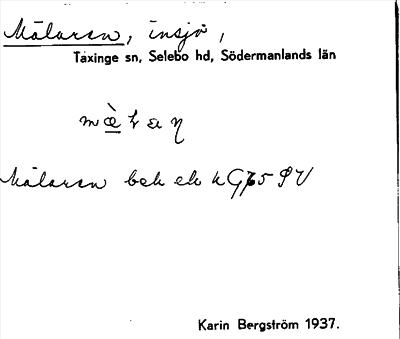 Mälaren, insjö,
Taxinge sn, Selebo hd, Södermanlands län
Mälaren bek ek
Karin Bergström 1937.